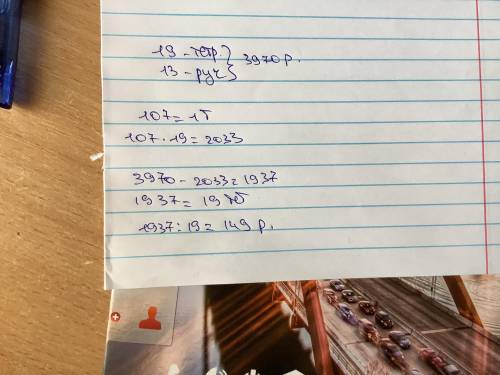 19 - тетр. } 3970 р.
13 - руч }
107 = 1т
107 · 19 = 2033
3970 - 2033 = 1937
1937 = 19
1937 : 19 = 149 р.